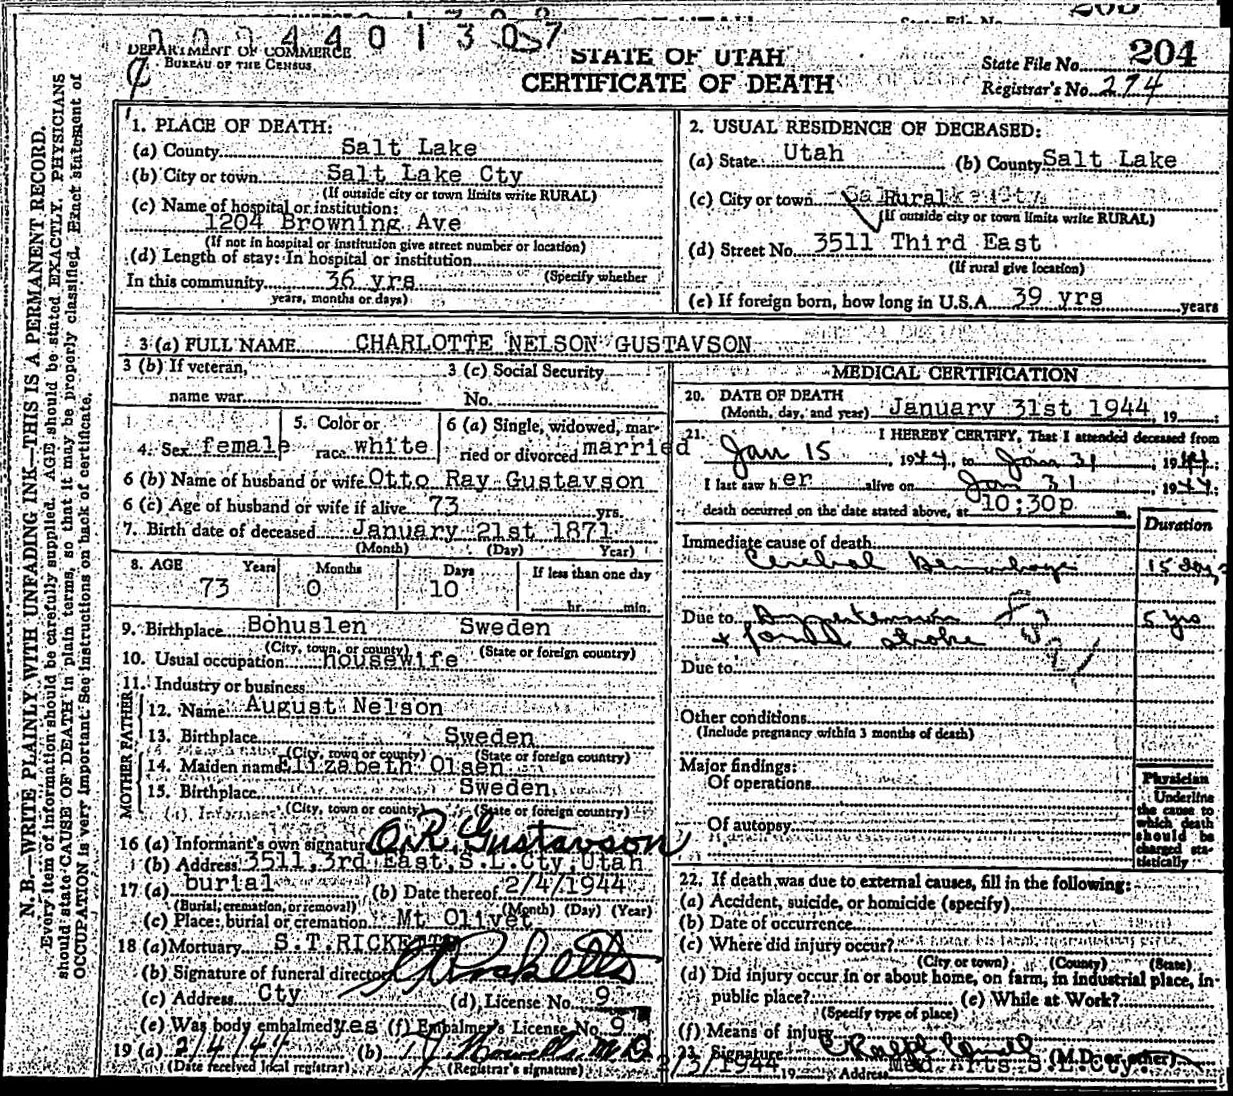 0 0 9 4 4 0 1 3 0 7
DEPARTMENT OF COMMERCE
BUREAU OF THE CENSUS
STATE OF UTAH
CERTIFICATE OF DEATH
State File No. 204
Registrar's No. 274
N. B.—WRITE PLAINLY WITH UNFADING INK—THIS IS A PERMANENT RECORD.
Every item of information should be carefully supplied. AGE should be stated EXACTLY. PHYSICIANS
should state CAUSE OF DEATH in plain terms, so that it may be properly classified. Exact statement of
OCCUPATION is very important. See instructions on back of certificate.
1. PLACE OF DEATH:
(a) County Salt Lake
(b) City or town Salt Lake Cty
(If outside city or town limits write RURAL)
(c) Name of hospital or institution:
1204 Browning Ave
(If not in hospital or institution give street number or location)
(d) Length of stay: In hospital or institution
In this community 36 yrs (Specify whether
years, months or days)
2. USUAL RESIDENCE OF DECEASED:
(a) State Utah (b) County Salt Lake
(c) City or town Rural
(If outside city or town limits write RURAL)
(d) Street No. 3511 Third East
(If rural give location)
(e) If foreign born, how long in U.S.A. 39 yrs years
3 (a) FULL NAME CHARLOTTE NELSON GUSTAVSON
3 (b) If veteran, 3 (c) Social Security
name war No.
4. Sex female 5. Color or race white 6 (a) Single, widowed, married or divorced married
6 (b) Name of husband or wife Otto Ray Gustavson
6 (c) Age of husband or wife if alive 73 yrs.
7. Birth date of deceased January 21st 1871
(Month) (Day) Year)
8. AGE Years Months Days If less than one day
73 0 10 hr. min.
9. Birthplace Bohuslen Sweden
(City, town, or county) (State or foreign country)
10. Usual occupation housewife
11. Industry or business
FATHER
12. Name August Nelson
13. Birthplace Sweden
(City, town or county) (State or foreign country)
MOTHER
14. Maiden name Elizabeth Olsen
15. Birthplace Sweden
(City, town or county) (State or foreign country)
16 (a) Informant's own signature O.R. Gustavson
(b) Address 3511 3rd East, S.L.Cty, Utah
17 (a) burial (b) Date thereof 2/4/1944
(Burial, cremation, or removal) (Month) (Day) (Year)
(c) Place: burial or cremation Mt Olivet
18 (a) Mortuary S.T.RICKETTS
(b) Signature of funeral director Ricketts
(c) Address Cty (d) License No. 9
(e) Was body embalmed yes (f) Embalmer's License No. 9
19 (a) 2/4/44 (b) M.D.
(Date received local registrar) (Registrar's signature)
MEDICAL CERTIFICATION
20. DATE OF DEATH
(Month, day, and year) January 31st 1944, 19
21. I HEREBY CERTIFY, That I attended deceased from
Jan 15, 1944, to Jan 31, 1944;
I last saw her alive on Jan 31, 1944;
death occurred on the date stated above, at 10:30p m.
Duration
Immediate cause of death
Cerebral Hemorrhage 15 days
Due to Hypertension 5 yrs
+ stroke
Due to
Other conditions
(Include pregnancy within 3 months of death)
Major findings:
Of operations
Of autopsy
Physician
Underline
the cause to
which death
should be
charged statistically
22. If death was due to external causes, fill in the following:
(a) Accident, suicide, or homicide (specify)
(b) Date of occurrence
(c) Where did injury occur?
(City or town) (County) (State)
(d) Did injury occur in or about home, on farm, in industrial place, in
public place? (e) While at Work?
(Specify type of place)
(f) Means of injury
23. Signature (M.D. or other)
2/3/1944 19 Address Med Arts S.L.Cty.